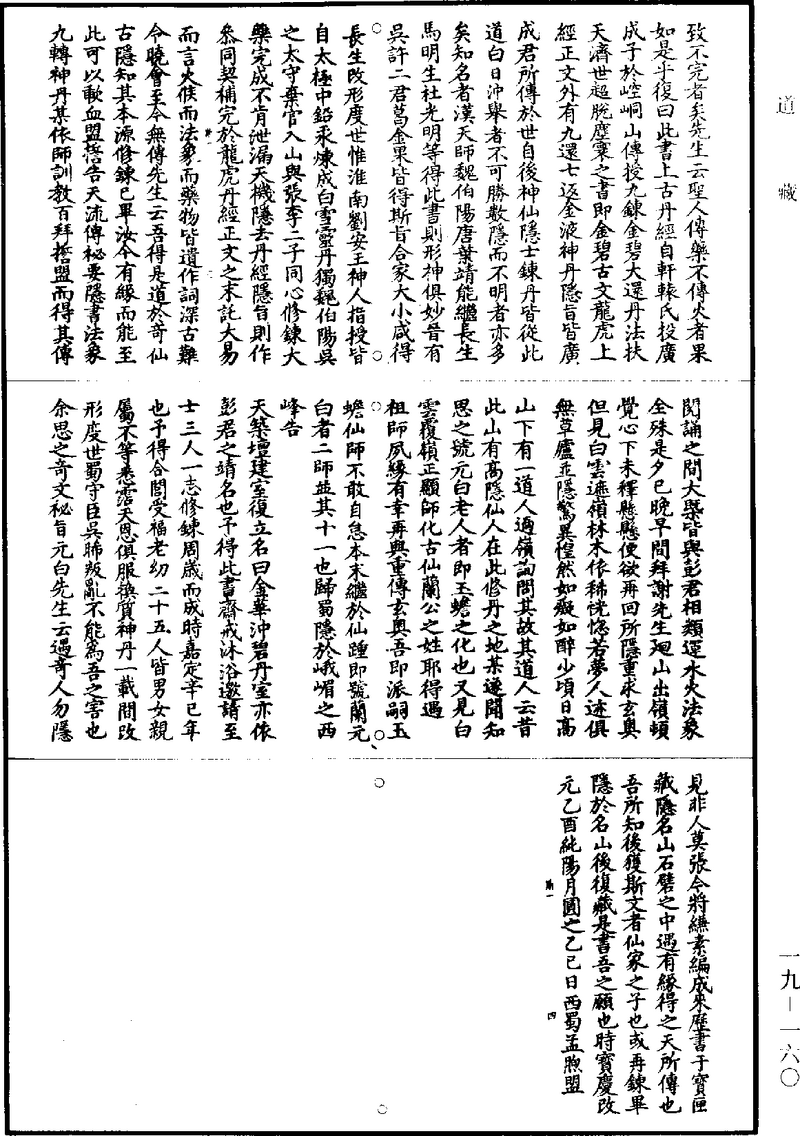 道藏
一九－一六〇
致不完者矣先生云聖人傳藥不傳火者果
如是乎復曰此書上古丹經自軒轅氏投廣
成子於崆峒山傳授九鍊金碧大還丹法扶
天濟世超脫塵寰之書即金碧古文龍虎上
經正文外有九還七返金液神丹隱旨皆廣
成君所傳於世自後神仙隱士鍊丹皆從此
道白日沖舉者不可勝數隱而不明者亦多
矣知名者漢天師魏伯陽唐葉靖能繼長生
馬明生杜光明等得此書則形神俱妙昔有
吳許二君葛金果皆得斯旨合家大小咸得
長生改形度世惟淮南劉安王神人指授皆
自太極中鉛汞煉成白雪靈丹獨魏伯陽吳
之太守棄官入山與張李二子同心修鍊大
藥完成不肯泄漏天機隱去丹經隱旨則作
參同契補完於龍虎丹經正文之末託大易
而言火候而法象而藥物皆遺作詞深古難
令曉會至今無傳先生云吾得是道於奇仙
古隱知其本源修鍊已畢汝今有緣而能至
此可以歃血盟誓告天流傳秘要隱書法象
九轉神丹某依師訓教百拜誓盟而得其傳
閱誦之間大槩皆與彭君相類運水火法象
全殊是夕已晚早間拜謝先生迴山出嶺頓
覺心下未釋懸懸便欲再回所隱重求玄奧
但見白雲遮嶺林木依稀恍惚若夢人迹俱
無草廬並隱驚異惶然如癡如醉少頃日高
山下有一道人過嶺詢問其故其道人云昔
此山有高隱仙人在此修丹之地某遂聞知
思之號元白老人者即玉蟾之化也又見白
雲覆嶺正顯師化古仙蘭公之姓耶得遇
祖師夙緣有幸再與重傳玄奧吾即派嗣玉
蟾仙師不敢自怠本末繼於仙踵即號蘭元
白者二師並其十一也歸蜀隱於峨嵋之西
峰告
天築壇建室復立名曰金華沖碧丹室亦依
彭君之靖名也予得此書齋戒沐浴邀請至
士三人一志修鍊周歲而成時嘉定辛巳年
也予得合閤受福老幼二十五人皆男女親
屬不等悉霑天恩俱服換質神丹一載間改
形度世蜀守臣吳肺叛亂不能為吾之害也
余思之奇文祕旨元白先生云遇奇人勿隱
見非人莫張今將縑素編成來歷書于寶匣
藏隱名山石壁之中遇有緣得之天所傳也
吾所知後獲斯文者仙家之子也或再鍊畢
隱於名山後復藏是書吾之願也時寶慶改
元乙酉純陽月圓之乙巳日西蜀孟煦盟
斯一
四